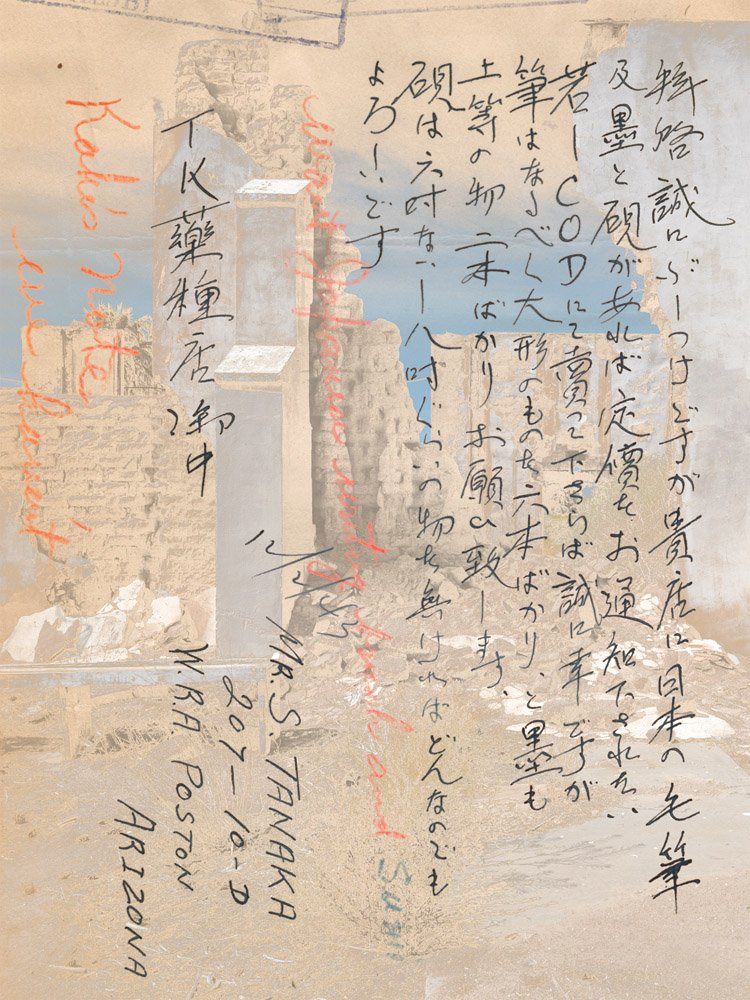 拝啓 誠にぶしつけですが貴店に日本の毛筆
及墨と硯があれば定價をお通知下されたい
若しCODにて賣って下さらば誠に幸ですが
筆はなるべく大形のものを六本ばかりと墨も
上等の物二本ばかりお願ひ致します、
硯は六吋ないし八吋ぐらいの物を無ければどんなのでも
よろしいです
want Japanese writing brush and
Sumi
12/2/43
MR. S. TANAKA
207-10-D
W.R.A. POSTON
ARIZONA
TK藥種店御中
Kaki's note
we haven't